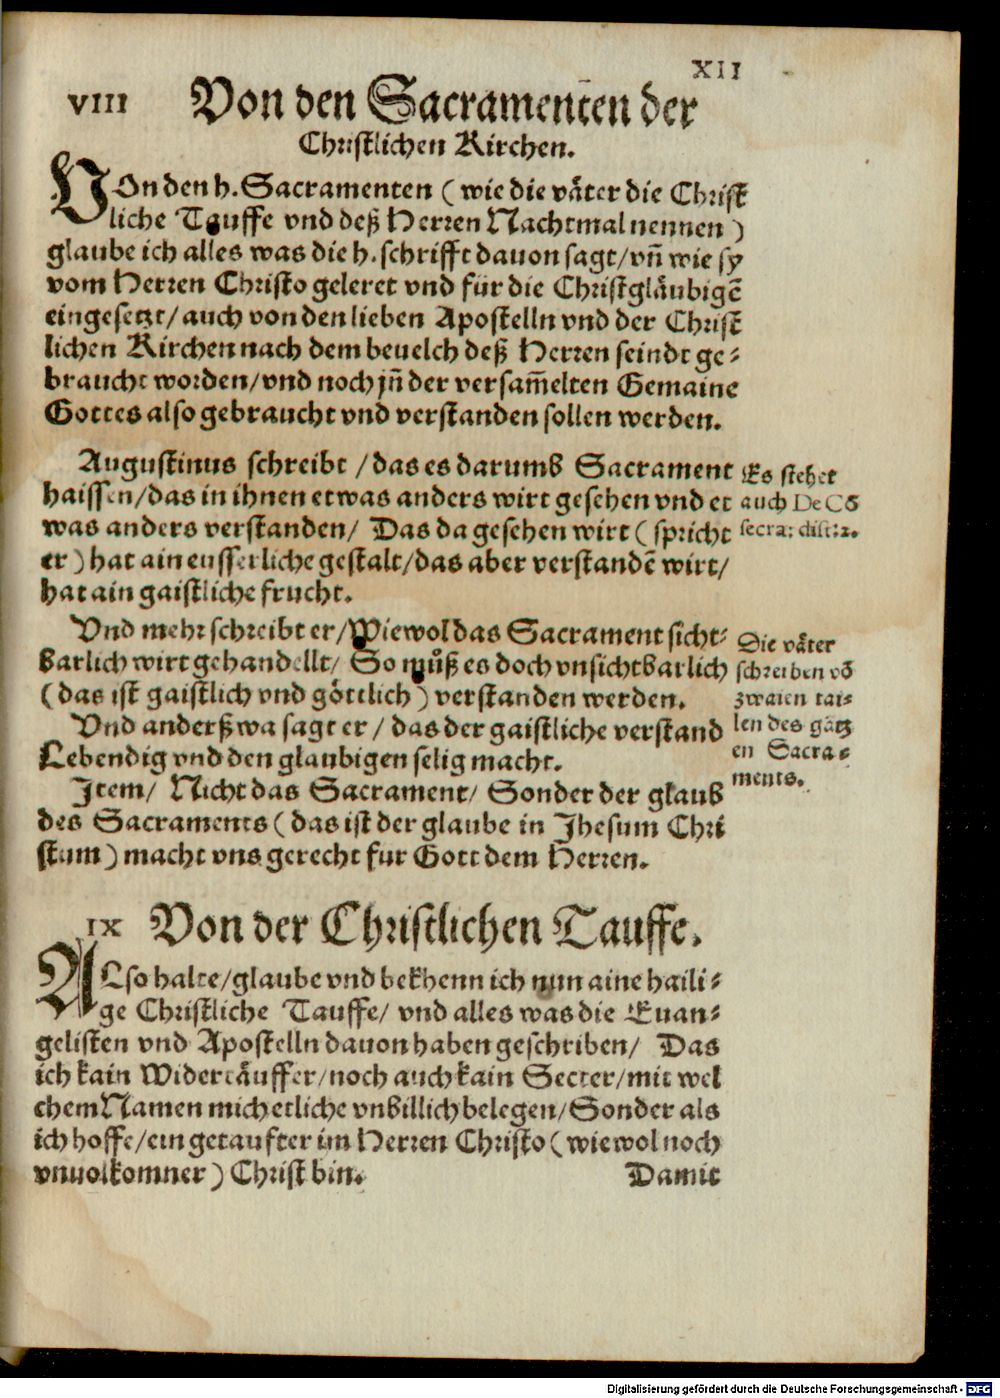 XII
VIII Von den Sacramenten der
Christlichen Kirchen.
VOn den h. Sacramenten ( wie die väter die Christ
liche Tauffe vnd deß Herren Nachtmal nennen )
glaube ich alles was die h. schrifft dauon sagt/vn̄ wie sy
vom Herren Christo geleret vnd für die Christgläubigē
eingesetzt/ auch von den lieben Apostelln vnd der Christ
lichen Kirchen nach dem beuelch deß Herren seindt ge⸗
braucht worden/vnd noch jn̄ der versam̄elten Gemaine
Gottes also gebraucht vnd verstanden sollen werden.
Augustinus schreibt /das es darumb Sacrament
haissen/das in ihnen etwas anders wirt gesehen vnd et
was anders verstanden/ Das da gesehen wirt ( spricht
er ) hat ain eusserliche gestalt/das aber verstandē wirt/
hat ain gaistliche frucht.
Es stehet
auch De Cō
secra: dist:2.
Vnd mehr schreibt er/Wiewol das Sacrament sicht⸗
barlich wirt gehandellt/ So můß es doch vnsichtbarlich
( das ist gaistlich vnd göttlich ) verstanden werden.
Vnd anderßwa sagt er / das der gaistliche verstand
Lebendig vnd den glaubigen selig macht.
Item/ Nicht das Sacrament/ Sonder der glaub
des Sacraments ( das ist der glaube in Jhesum Chri
stum ) macht vns gerecht fur Gott dem Herren.
Die väter
schreiben vō
zwaien tai⸗
len des gātz
en Sacra⸗
ments.
IX Von der Christlichen Tauffe.
ALso halte/glaube vnd bekhenn ich nun aine haili⸗
ge Christliche Tauffe/ vnd alles was die Euan⸗
gelisten vnd Apostelln dauon haben geschriben/ Das
ich kain Widertäuffer/noch auch kain Secter/mit wel
chem Namen mich etliche vnbillich belegen/Sonder als
ich hoffe/ein getaufter im Herren Christo ( wiewol noch
vnuolkomner ) Christ bin.
Damit
Digitalisierung gefördert durch die Deutsche Forschungsgemeinschaft - DFG